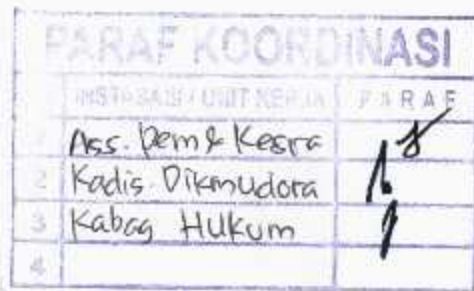 PARAF KOORDINASI
INSTASASI / UNIT KERJA PARAF
1 Ass. Pem & Kesra
2 Kadis Dikmudora
3 Kabag Hukum
4